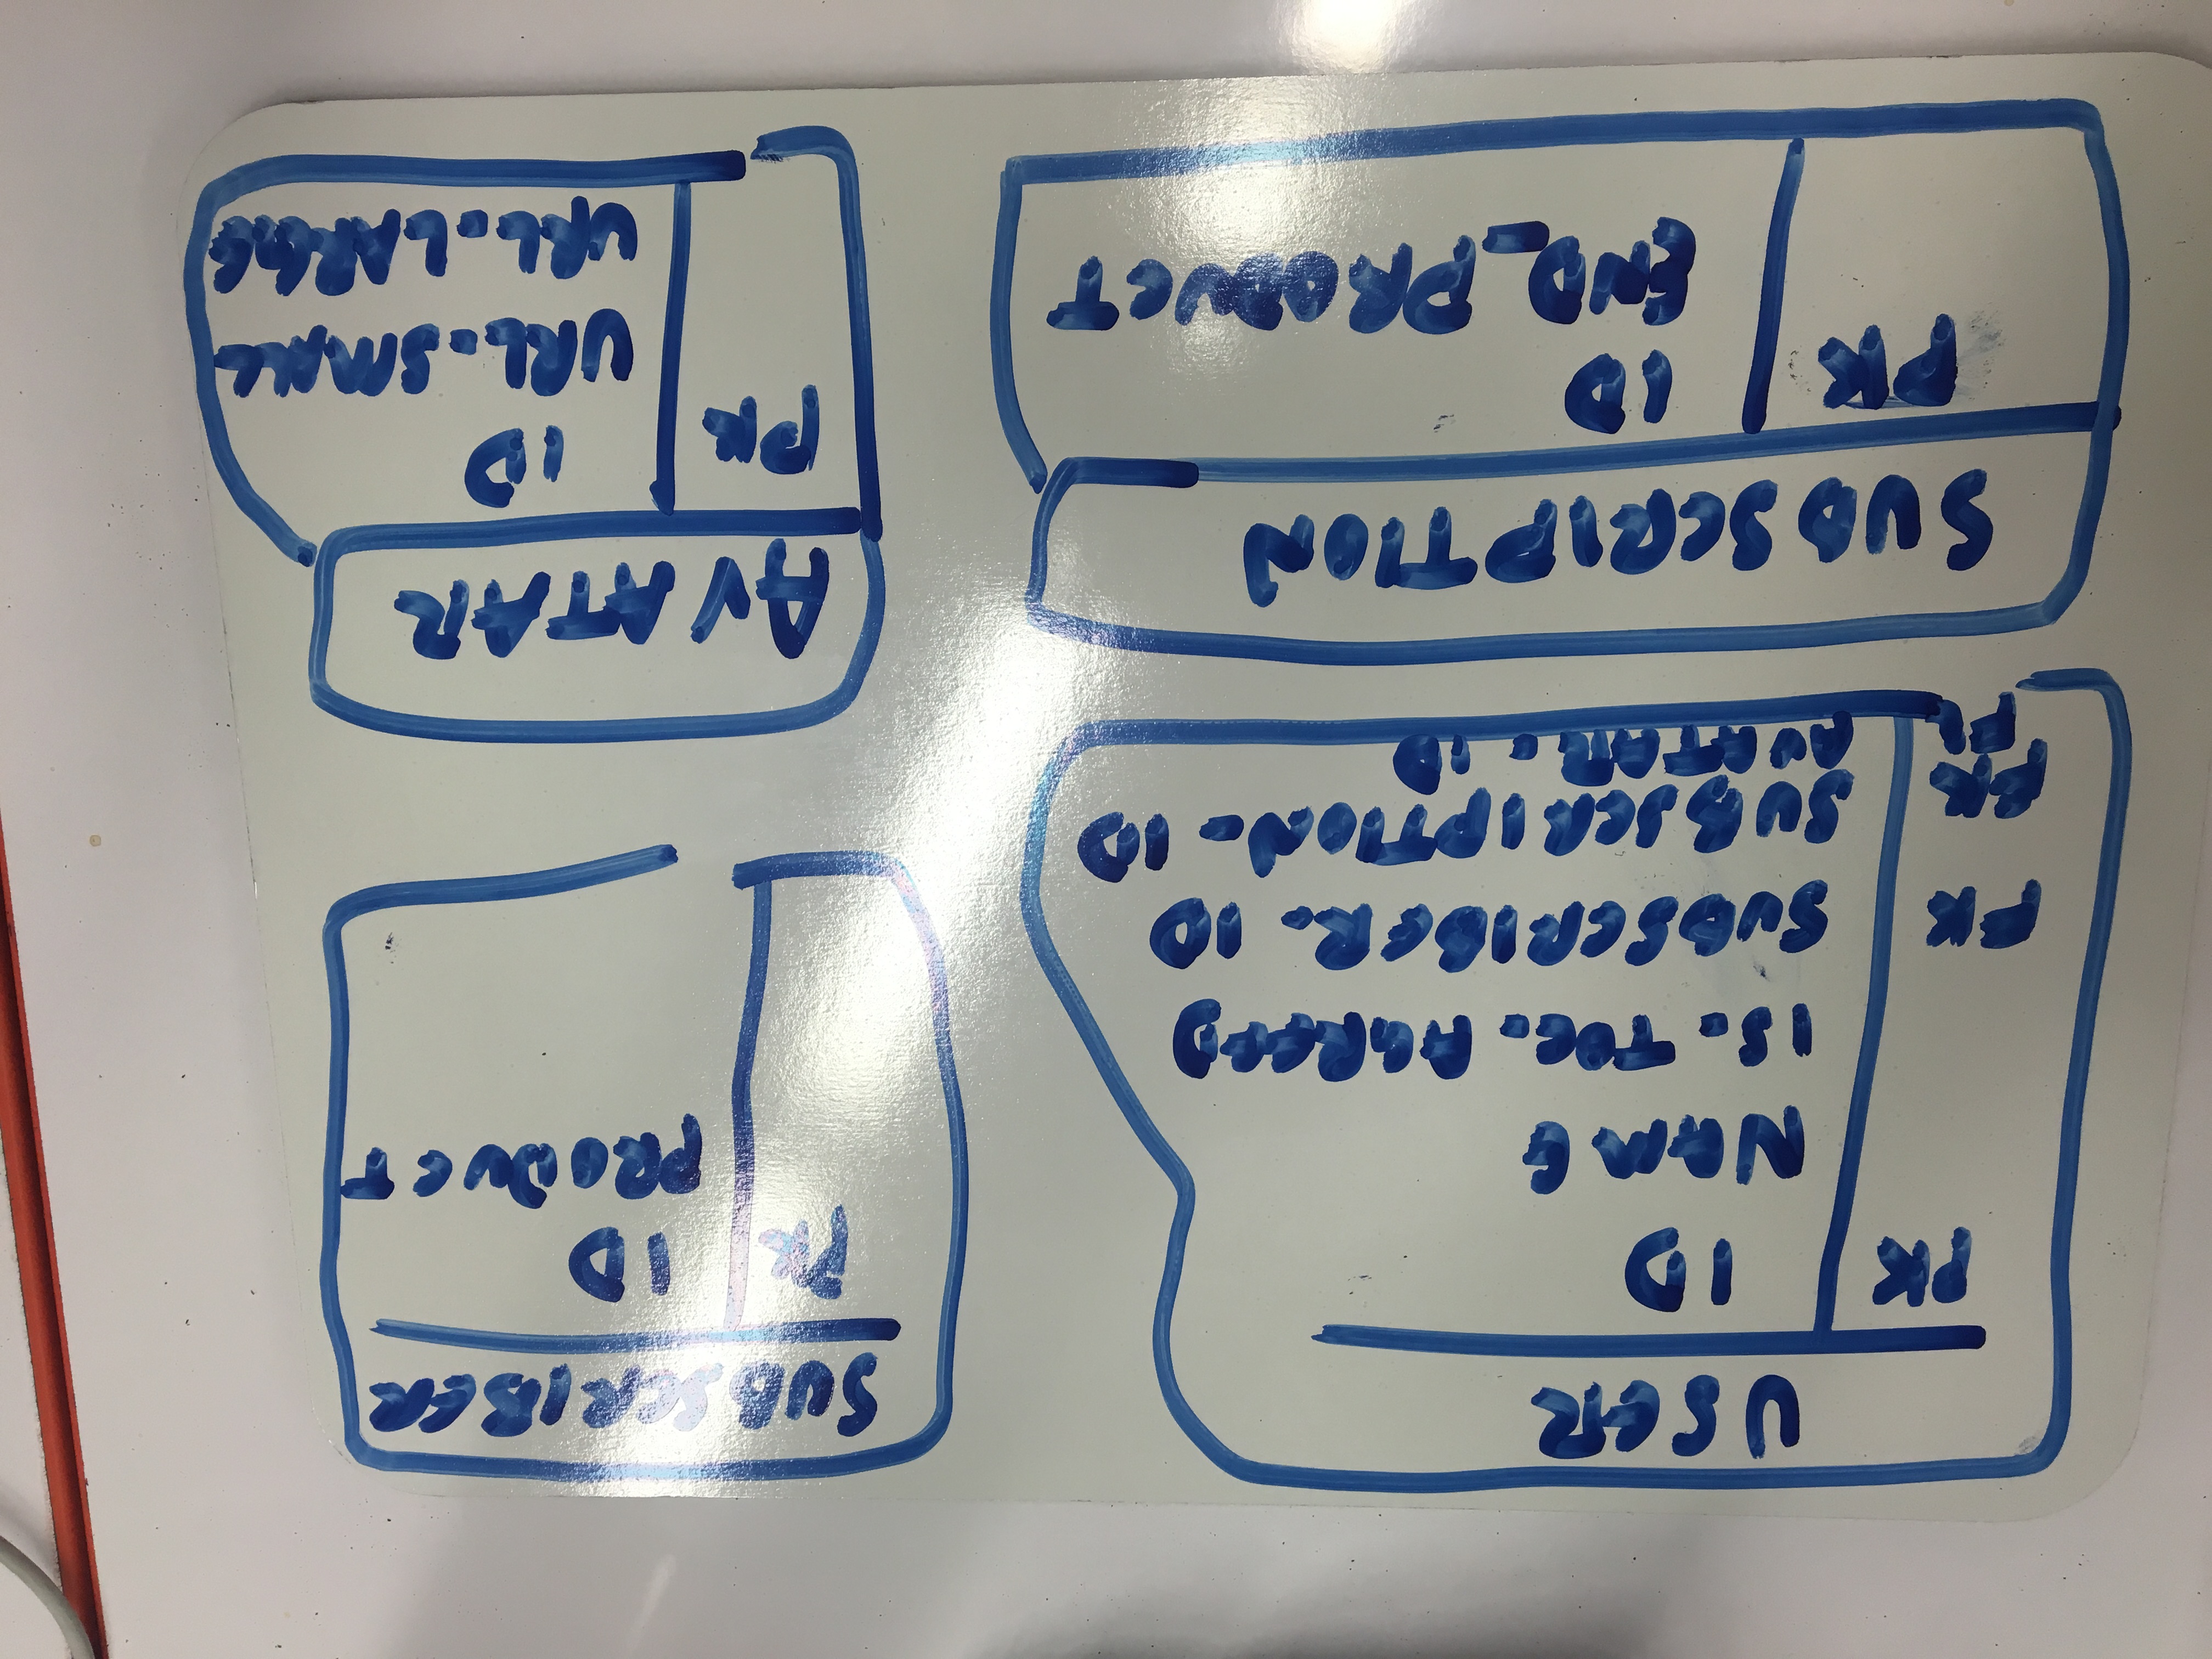 USER
PK ID
NAME
IS_TOS_AGREED
FK SUBSCRIBER_ID
FK SUBSCRIPTION_ID
AVATAR_ID
SUBSCRIBER
PK ID
PRODUCT
SUBSCRIPTION
PK ID
END_PRODUCT
AVATAR
PK ID
URL_SMALL
URL_LARGE